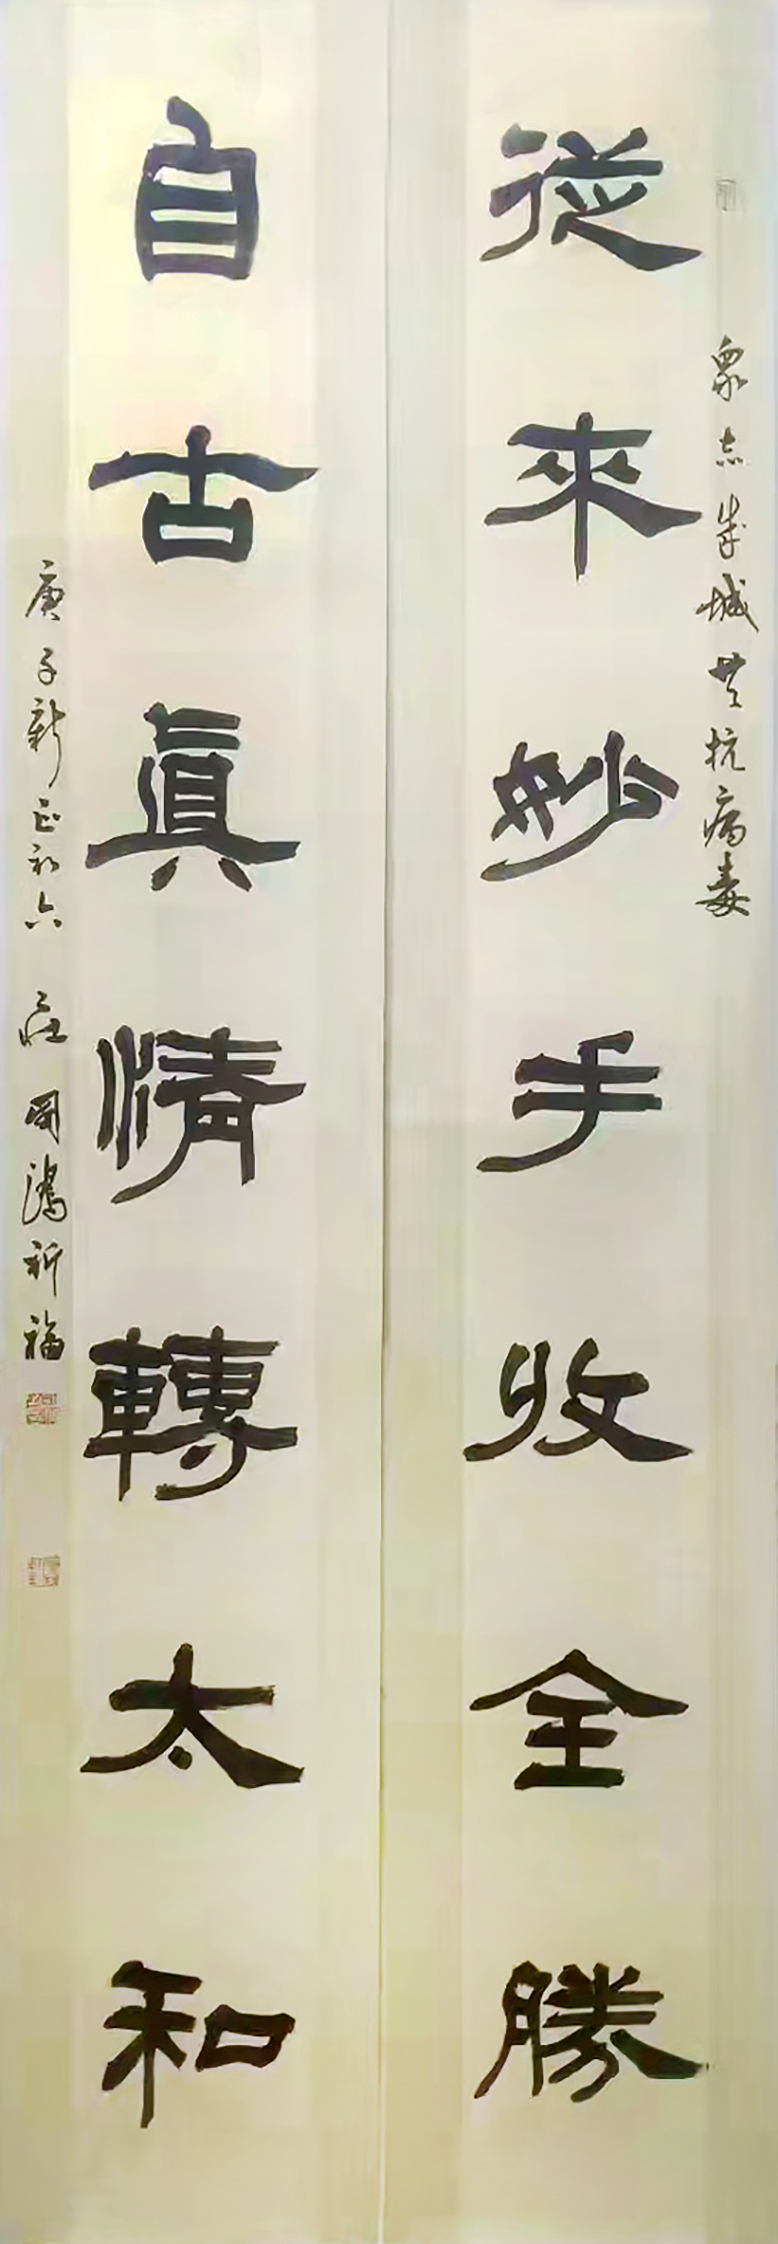 眾志成城共抗病毒
從來妙手收全勝
自古真情轉太和
庚子新正初六 莊國鴻祈福